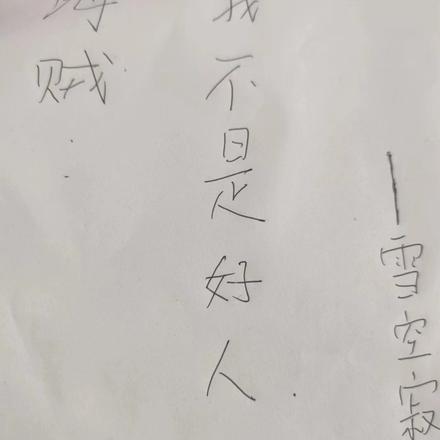 海贼:
我不是好人.
—雪空寂